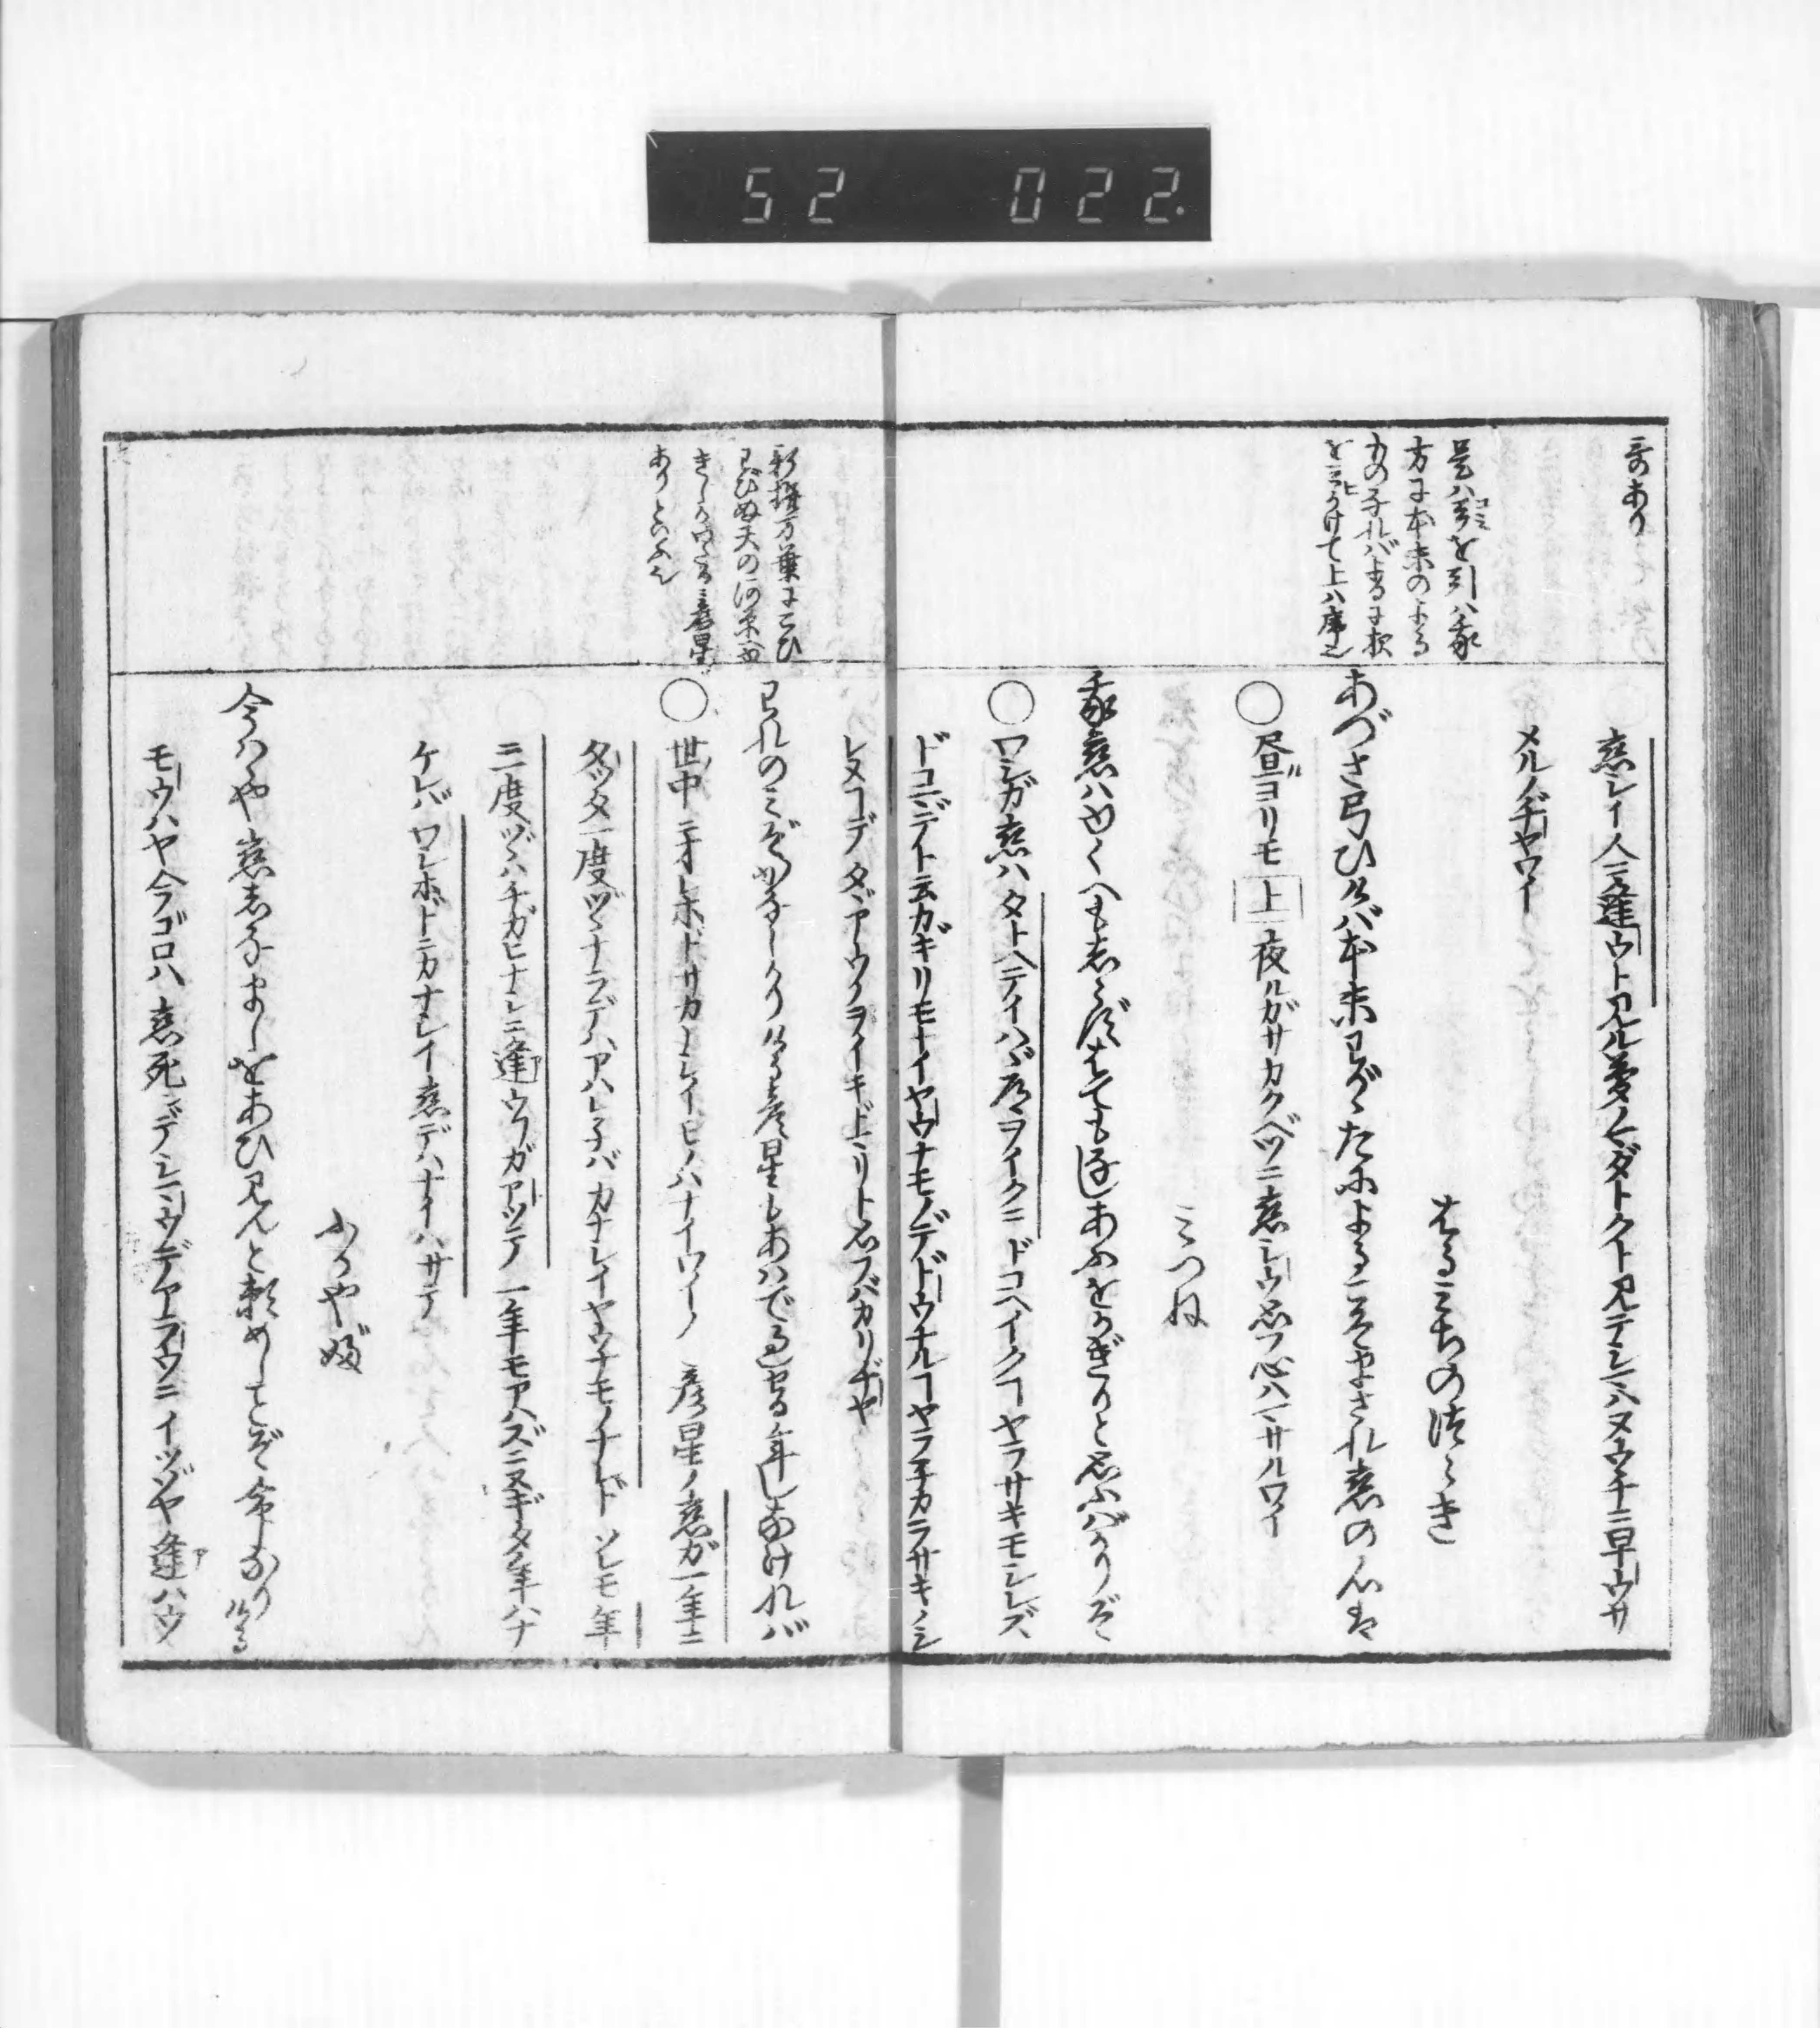 52 022.
哥あり
是ハ弓を引ハ我
方に本末のよる
あづさ弓ひけバ本末わがたによるこそまされ恋の心は
恋シイ人ニ逢ウト見ル夢ノ
メルノヂヤワイ
はるみちのつらき
昼ヨリモ上夜ルガサカクベツニ恋シウ思フ心ハマサルワイ
みつね
我恋ハゆくへもしらずはてもなしあふをかぎりと思ふバかりぞ
ワシガ恋ハタトヘテイハヾ道ヲイクニドコヘイクヿヤラサキモシレズ
ドコニデト云カギリモナイヤウナモノデドウナルヿヤラ子カラサキノシ
レヌヿデタヾアウヲイキドマリト思フバカリヂヤ
新撰万葉にこひ
わびぬ天の河原
ありといふ也
われのみぞかなしかりける彦星もあハで過せる年しなけれバ
世中ニオレホドサカナシイモノハナイワイノ 彦星ノ恋ガ一年ニ
タツタ一度ヅヽナラデハアハレ子バカナシイヤウナモノナレドソレモ年
ニ一度ヅヽハチガヒナシニ逢ウヿガアツテ一年モアハズニスギタ年ハナ
ケレバワレホドニカナシイ恋デハナイハサテ
ふかやぶ
今ハはや恋しなましをあひ見んと頼めしことぞ命なりける
モウハヤ今ゴロハ恋死ンデシマウデアラウニイツゾヤ逢ハウ